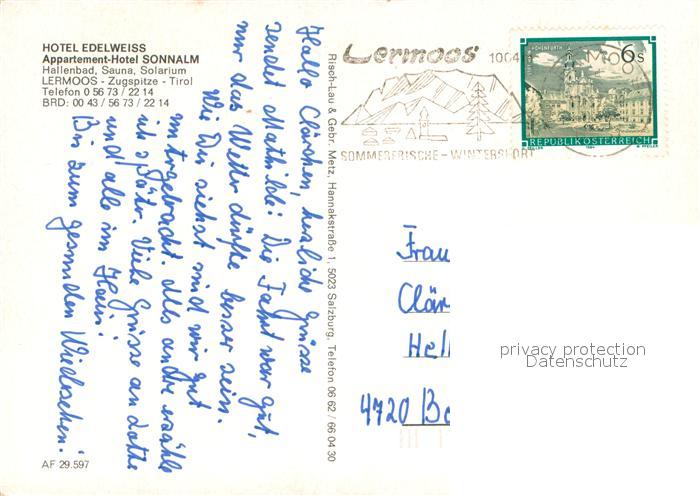 HOTEL EDELWEISS
Appartement-Hotel SONNALM
Hallenbad, Sauna, Solarium
LERMOOS - Zugspitze - Tirol
Telefon 0 56 73 / 22 14
BRD: 00 43 / 56 73 / 22 14
Hallo Clärchen, herzliche Grüsse
sendet Mathilde! Die Fahrt war gut,
nur das Wetter dürfte besser sein.
Wie Du siehst sind wir gut
untergebracht. Alles andre erzähle
ich später. Viele Grüsse an
und alle im Haus!
Bis zum gesunden Wiedersehen!
AF 29.597
Risch-Lau & Gebr. Metz, Hannakstraße 1, 5023 Salzburg, Telefon 06 62 / 66 04 30
Lermoos
SOMMERFRISCHE - WINTERSPORT
6s
REPUBLIK ÖSTERREICH
Frau
Clär
Hell
4720 Be
privacy protection
Datenschutz